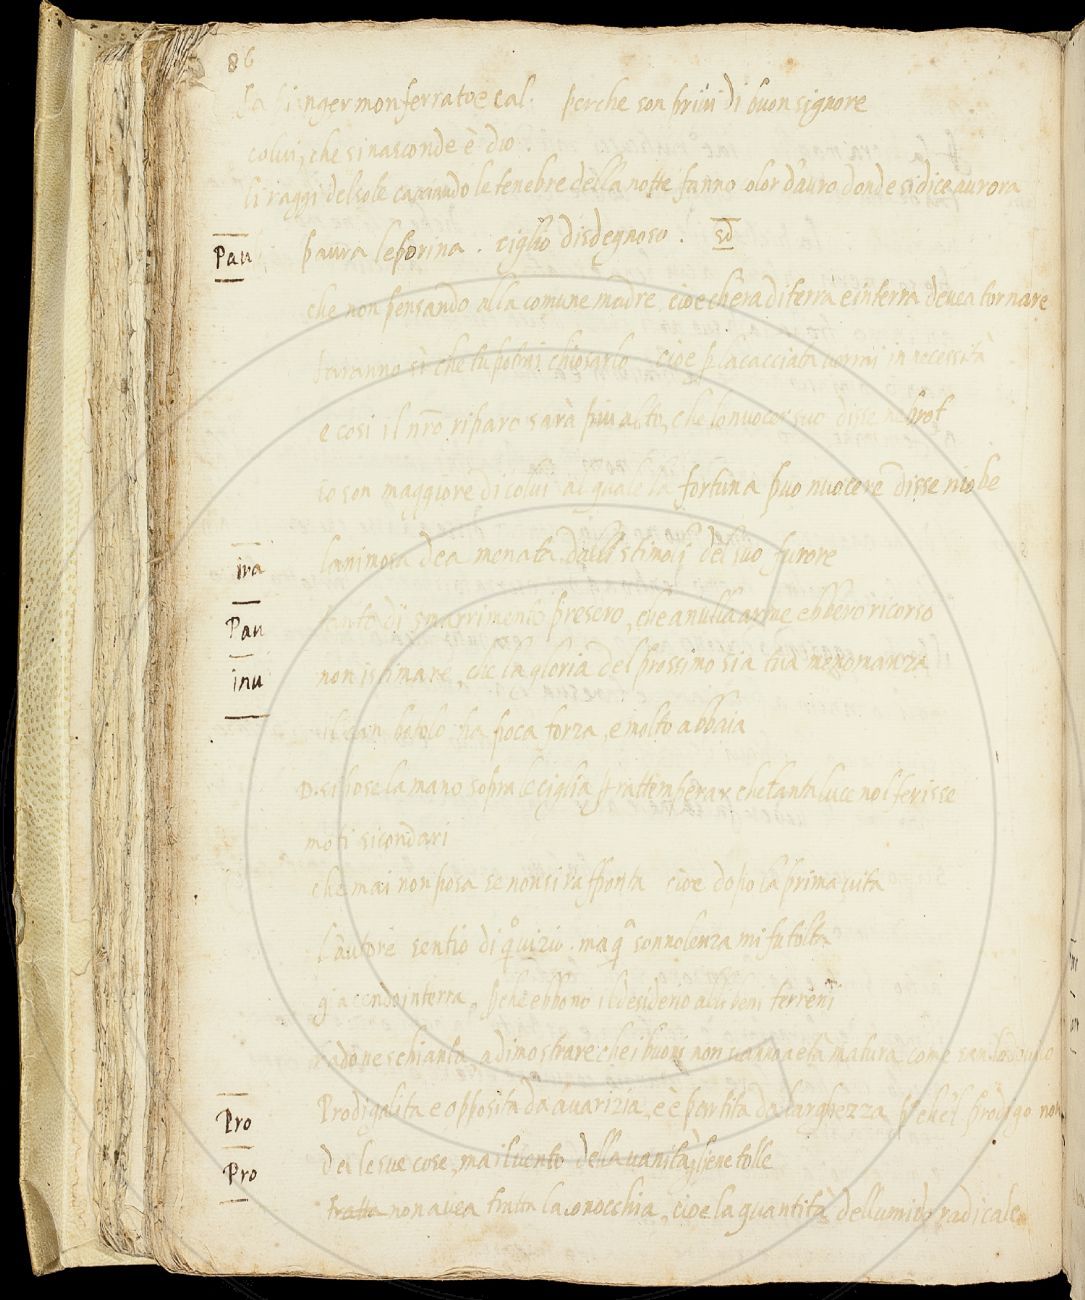 86
fa pianger monferrato e cal. perche son privi di buon signore
colui, che si nasconde è dio.
li raggi del sole cacciando le tenebre della notte fanno olor d'auro donde si dice aurora
Pau paura leporina. ciglio disdegnoso. sd
che non pensando alla comune madre, cioe ch'era di terra e in terra devea tornare
faranno sì che tu potrai chiosarlo cioe p la cacciata verrai in necessità
e cosi il nro riparo sarà piu alto, che lo nuocer suo disse
io son maggiore di colui al quale la fortuna puo nuocere disse niobe
ira l'animosa dea menata dalli stimoli del suo furore
Pau tanto di smarrimento presero, che a nulla arme ebbero ricorso
inu non istimare, che la gloria del prossimo sia tua menomanza
il can botolo ha poca forza, e molto abbaia
D. si pose la mano sopra le ciglia p rattemperar che tanta luce nol ferisse
moti sicondari
che mai non posa se non si raffronta cioe dopo la prima vita
l'autore sentio di qo vizio. ma qa sonnolenza mi fu tolta
giacendo in terra, pche ebbono il desiderio alli beni terreni
adimostrare che i buoni non vanno a età matura, come
Pro Prodigalita e opposita da avarizia, e è partita da larghezza pche'l prodigo non
Pro da le sue cose, ma il vento della vanità liene tolle
tratta non avea tratta la conocchia, cioe la quantità dell umido radicale